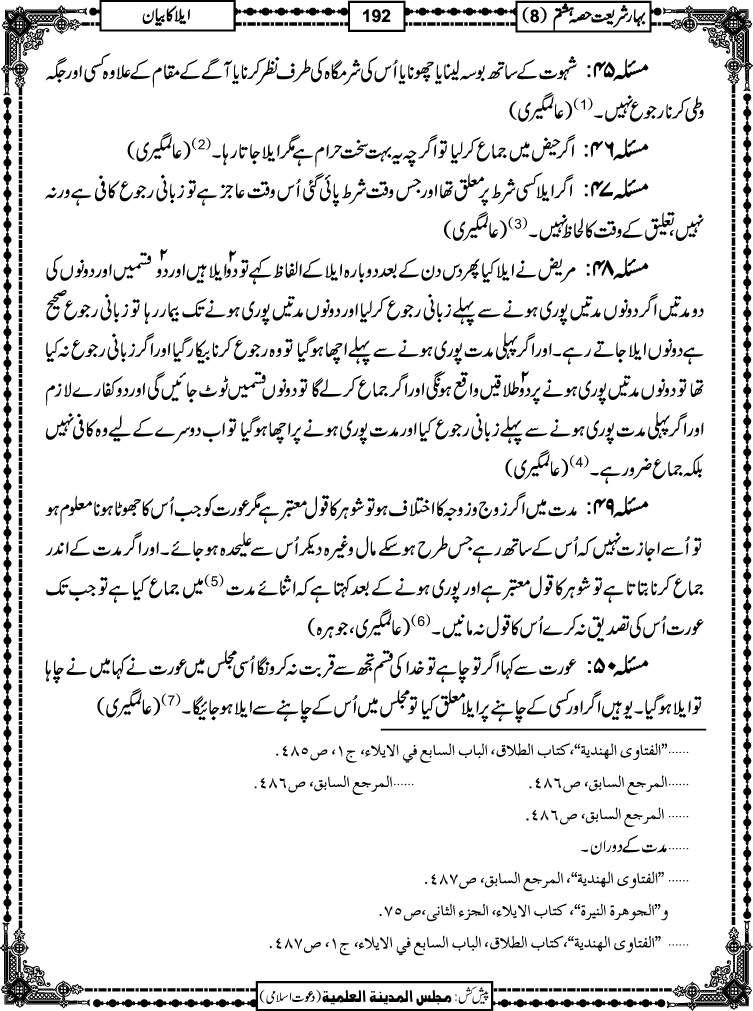 بہارِ شریعت حصہ ہشتم (8)
192
ایلا کا بیان
مسئلہ ۴۵: شہوت کے ساتھ بوسہ لینا یا چھونا یا اُس کی شرمگاہ کی طرف نظر کرنا یا آگے کے مقام کے علاوہ کسی اور جگہ
وطی کرنا رجوع نہیں۔(1) (عالمگیری)
مسئلہ ۴۶: اگر حیض میں جماع کرلیا تو اگرچہ یہ بہت سخت حرام ہے مگر ایلا جاتا رہا۔(2) (عالمگیری)
مسئلہ ۴۷: اگر ایلا کسی شرط پر معلق تھا اور جس وقت شرط پائی گئی اُس وقت عاجز ہے تو زبانی رجوع کافی ہے ورنہ
نہیں، تعلیق کے وقت کا لحاظ نہیں۔(3) (عالمگیری)
مسئلہ ۴۸: مریض نے ایلا کیا پھر دس دن کے بعد دوبارہ ایلا کے الفاظ کہے تو دو۲ ایلا ہیں اور دو۲ قسمیں اور دونوں کی
دو مدتیں اگر دونوں مدتیں پوری ہونے سے پہلے زبانی رجوع کرلیا اور دونوں مدتیں پوری ہونے تک بیمار رہا تو زبانی رجوع صحیح
ہے دونوں ایلا جاتے رہے۔ اور اگر پہلی مدت پوری ہونے سے پہلے اچھا ہوگیا تو وہ رجوع کرنا بیکار گیا اور اگر زبانی رجوع نہ کیا
تھا تو دونوں مدتیں پوری ہونے پر دو۲ طلاقیں واقع ہونگی اور اگر جماع کرلے گا تو دونوں قسمیں ٹوٹ جائیں گی اور دو کفارے لازم
اور اگر پہلی مدت پوری ہونے سے پہلے زبانی رجوع کیا اور مدت پوری ہونے پر اچھا ہوگیا تو اب دوسرے کے لیے وہ کافی نہیں
بلکہ جماع ضرور ہے۔(4) (عالمگیری)
مسئلہ ۴۹: مدت میں اگر زوج و زوجہ کا اختلاف ہو تو شوہر کا قول معتبر ہے مگر عورت کو جب اُس کا جھوٹا ہونا معلوم ہو
تو اُسے اجازت نہیں کہ اُس کے ساتھ رہے جس طرح ہو سکے مال وغیرہ دیکر اُس سے علیحدہ ہو جائے۔ اور اگر مدت کے اندر
جماع کرنا بتاتا ہے تو شوہر کا قول معتبر ہے اور پوری ہونے کے بعد کہتا ہے کہ اثنائے مدت(5) میں جماع کیا ہے تو جب تک
عورت اُس کی تصدیق نہ کرے اُس کا قول نہ مانیں۔(6) (عالمگیری، جوہرہ)
مسئلہ ۵۰: عورت سے کہا اگر تو چاہے تو خدا کی قسم تجھ سے قربت نہ کرونگا اُسی مجلس میں عورت نے کہا میں نے چاہا
تو ایلا ہوگیا۔ یوہیں اگر اور کسی کے چاہنے پر ایلا معلق کیا تو مجلس میں اُس کے چاہنے سے ایلا ہو جائیگا۔(7) (عالمگیری)
......"الفتاوى الهندية"، كتاب الطلاق، الباب السابع في الايلاء، ج١، ص٤٨٥.
......المرجع السابق، ص٤٨٦. ......المرجع السابق، ص٤٨٦.
...... المرجع السابق، ص٤٨٦.
......مدت کے دوران۔
...... "الفتاوى الهندية"، المرجع السابق، ص٤٨٧.
و"الجوهرة النيرة"، كتاب الايلاء، الجزء الثانى، ص٧٥.
...... "الفتاوى الهندية"، كتاب الطلاق، الباب السابع في الايلاء، ج١، ص٤٨٧.
پیش کش: مجلس المدينة العلمية (دعوت اسلامی)